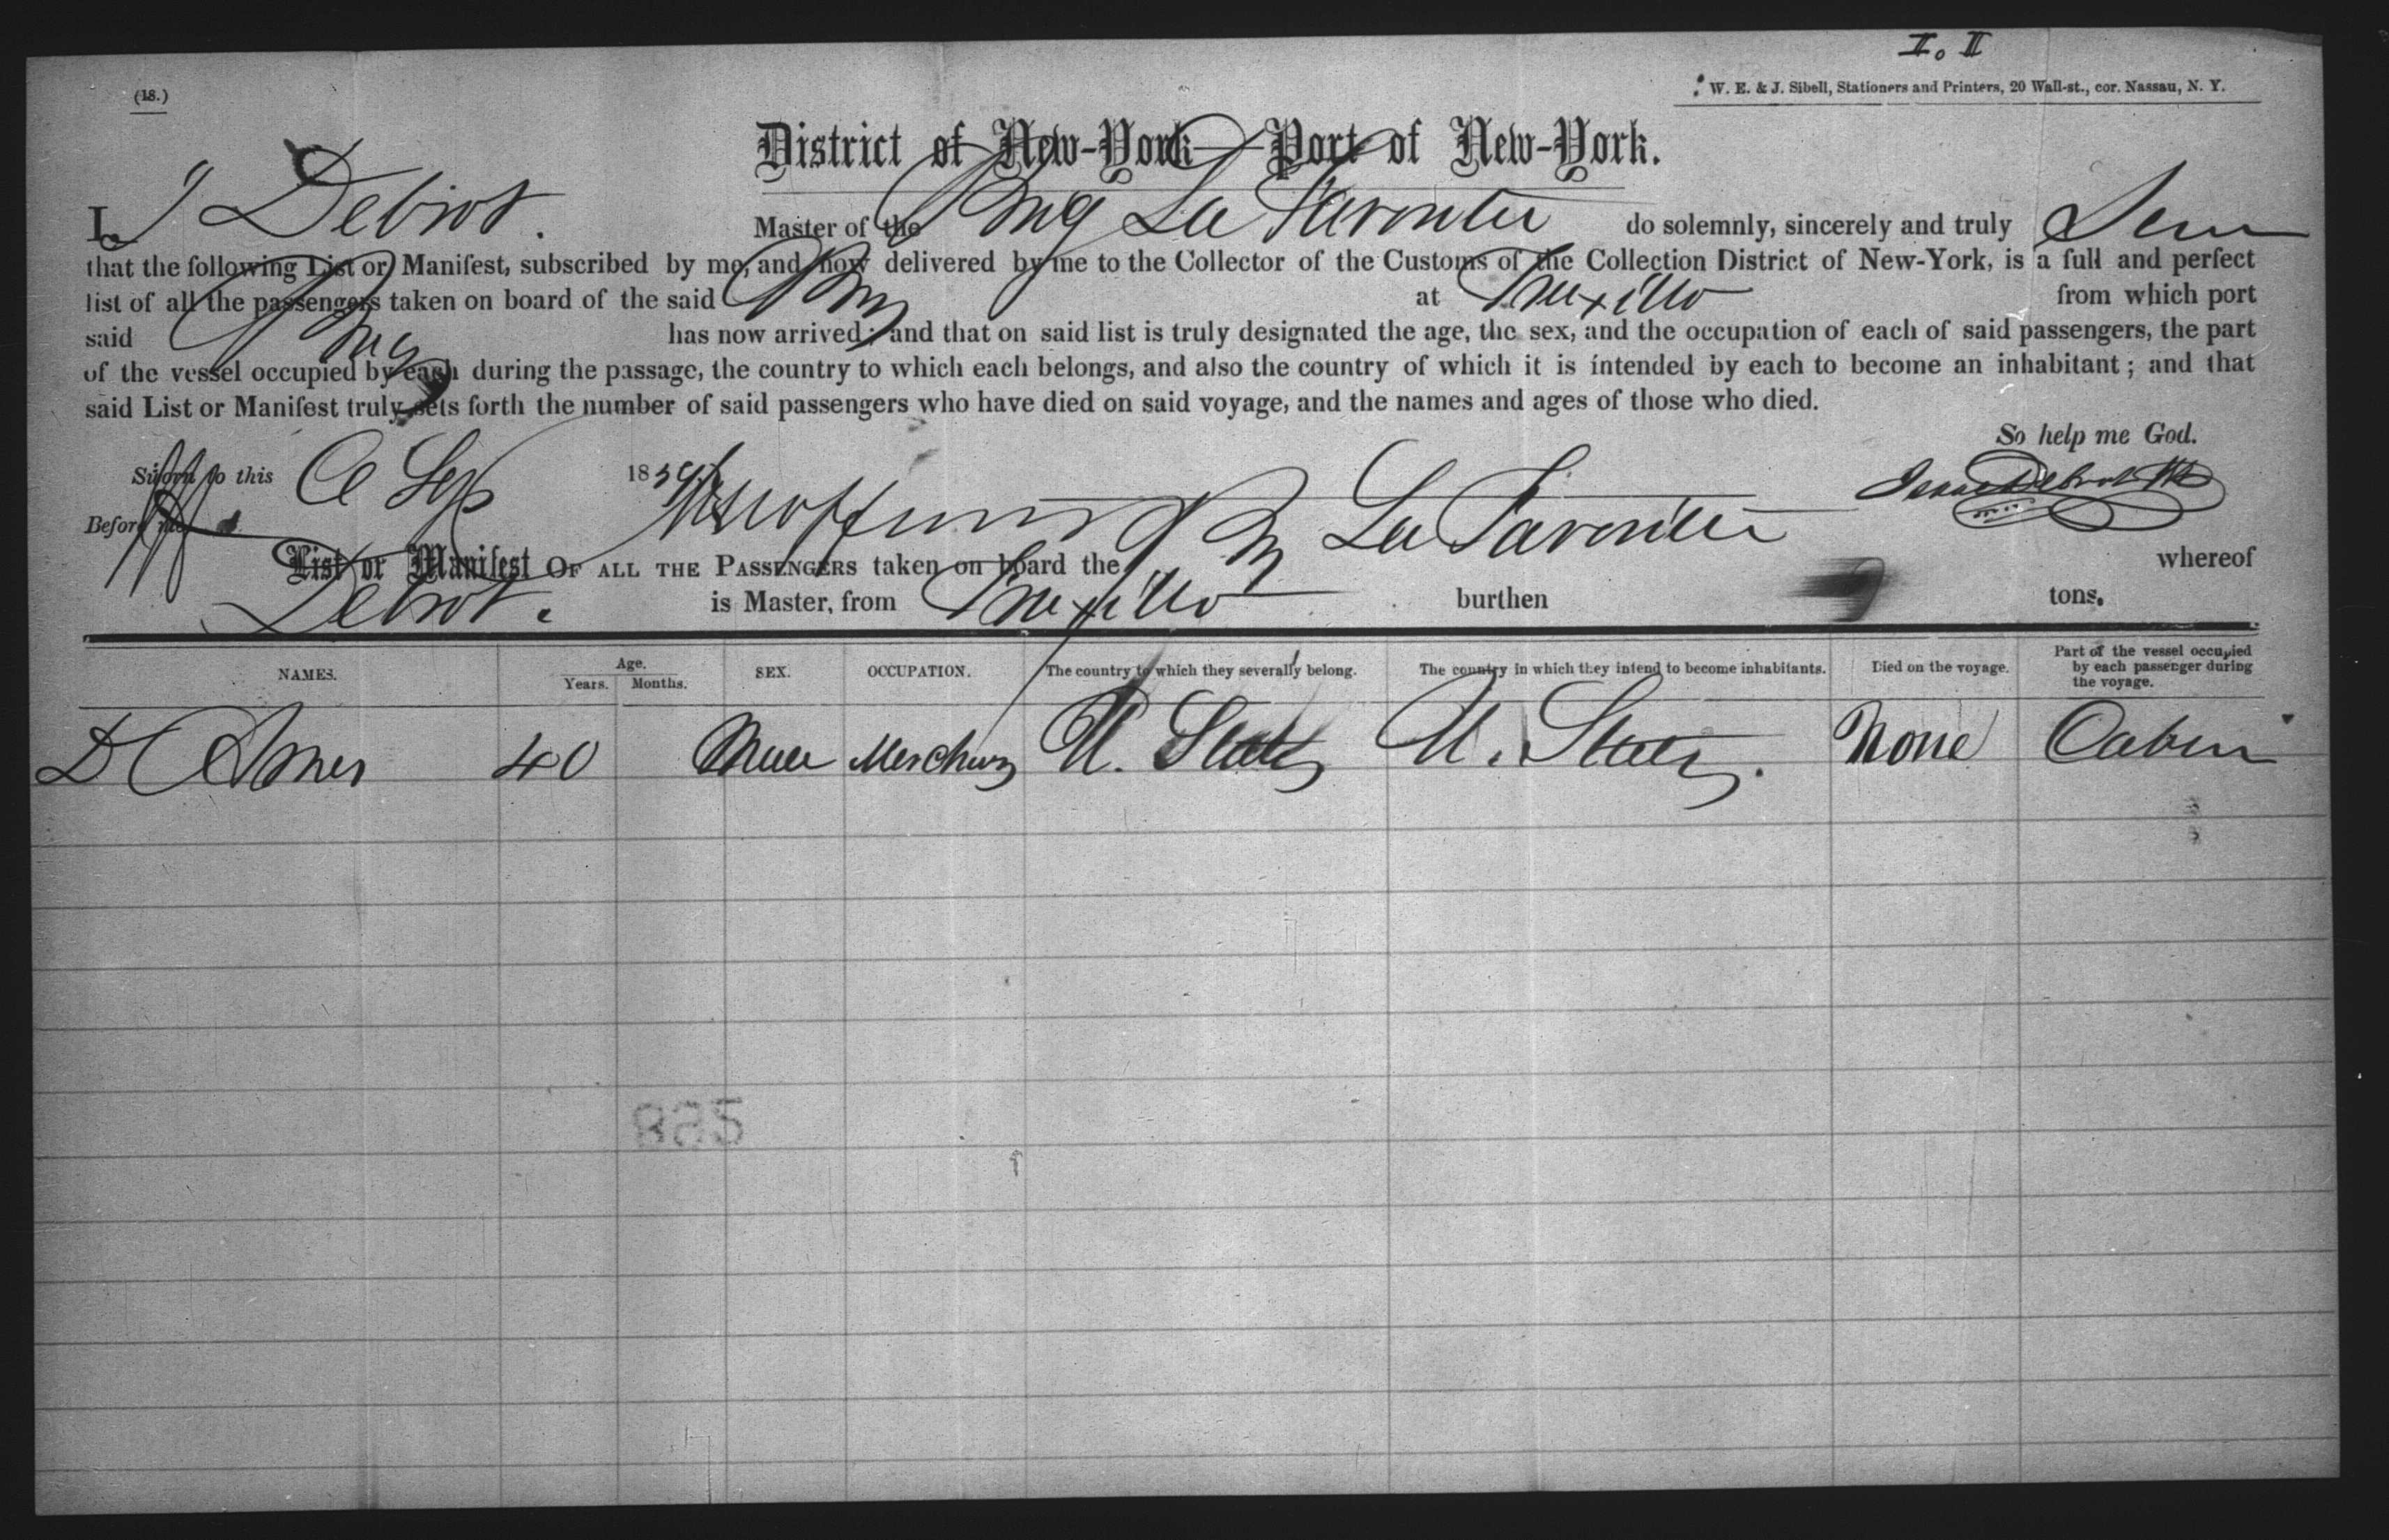 I. II
(18.)
W. E. & J. Sibell, Stationers and Printers, 20 Wall-st., cor. Nassau, N. Y.
District of New-York—Port of New-York.
I, J Debrot. Master of the Brig La Favorite do solemnly, sincerely and truly
that the following List or Manifest, subscribed by me, and now delivered by me to the Collector of the Customs of the Collection District of New-York, is a full and perfect
list of all the passengers taken on board of the said Brig at Truxillo from which port
said Brig has now arrived; and that on said list is truly designated the age, the sex, and the occupation of each of said passengers, the part
of the vessel occupied by each during the passage, the country to which each belongs, and also the country of which it is intended by each to become an inhabitant; and that
said List or Manifest truly sets forth the number of said passengers who have died on said voyage, and the names and ages of those who died.
So help me God.
Sworn to this Sep 1859
Before me
List or Manifest OF ALL THE PASSENGERS taken on board the Brig La Favorite whereof
Debrot. is Master, from Truxillo burthen tons.
NAMES. Age. Years. Months. SEX. OCCUPATION. The country to which they severally belong. The country in which they intend to become inhabitants. Died on the voyage. Part of the vessel occupied by each passenger during the voyage.
D C Ames 40 Male Merchant U. States U. States. None Cabin